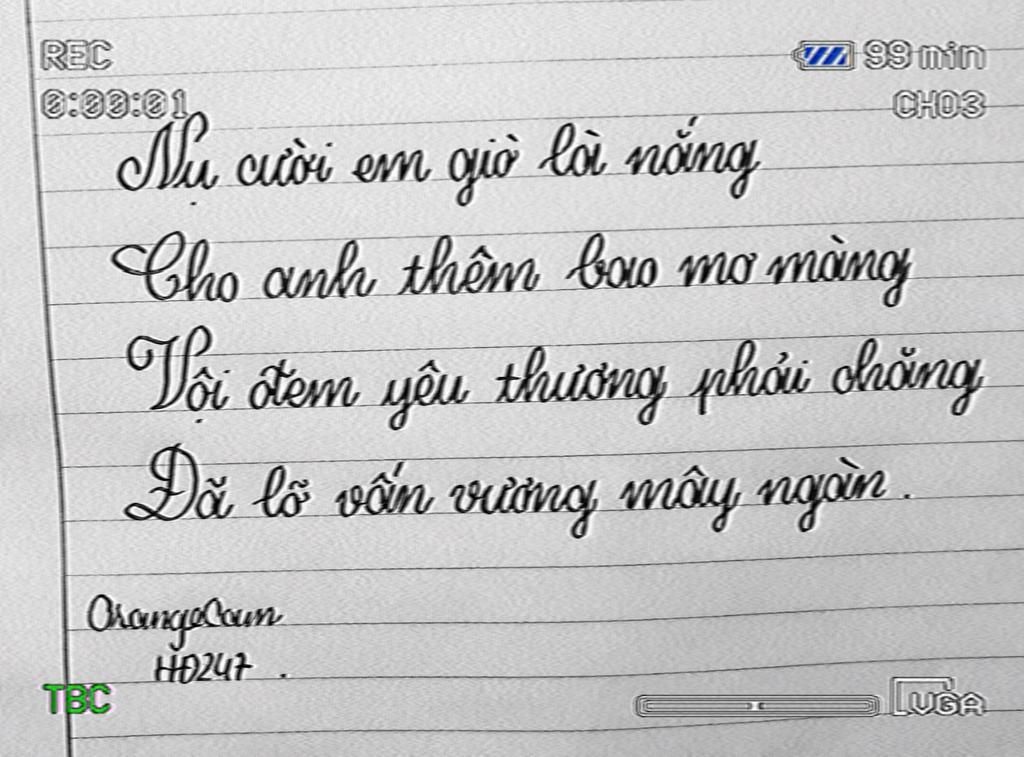 REC
99 min
0:00:01
CH03
Nụ cười em giờ lòi nắng
Cho anh thêm bao mơ màng
Vội đem yêu thương phải chăng
Đã lỡ vấn vương mây ngàn.
OrangeCam
HĐ247.
TBC
VGA